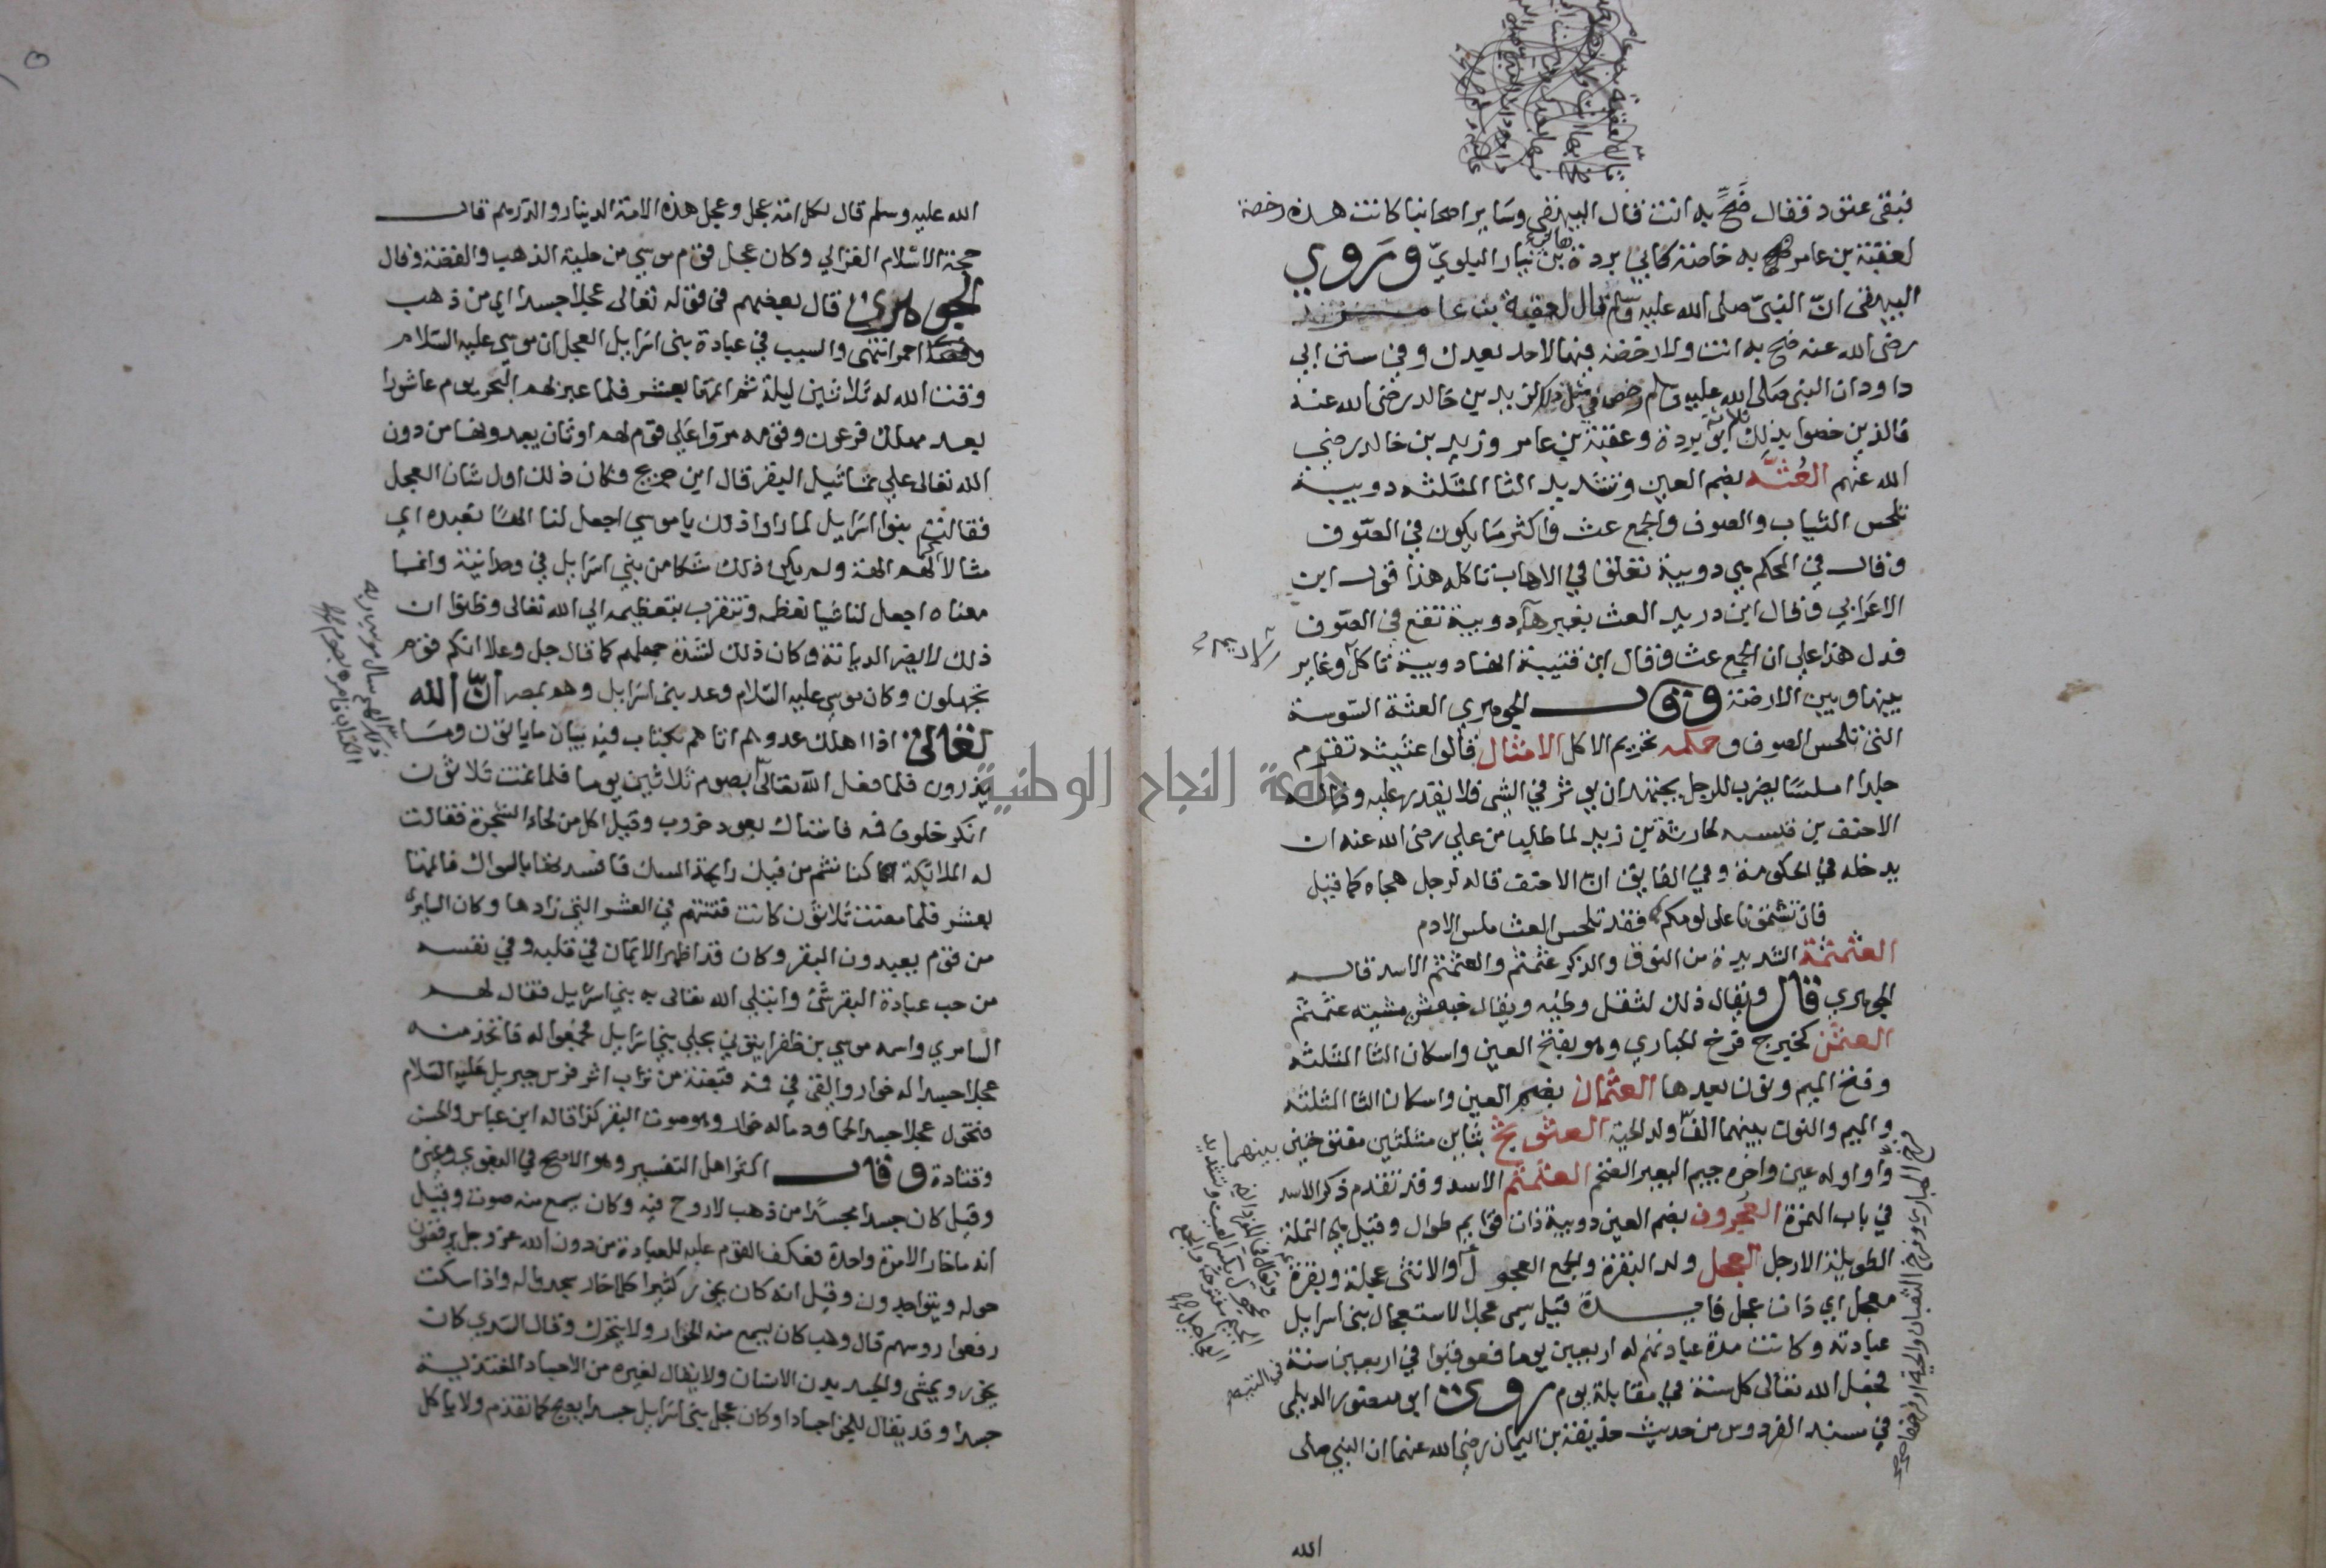 فبقى عتود فقال ضَحِّ به انت قال البيهقي وساير اصحابنا كانت هذه رخصة
لعقبة بن عامر به خاصة كابي بردة هانئ بن نيار البلويّ وروي
البيهقى انّ النبىّ صلى الله عليه وسلم قال لعقبة بن عامر
رضى الله عنه ضح به انت ولا رخصة فيها لاحد بعدك وفي سنن ابي
داود ان النبى صلى الله عليه وسلم رخص في مثل ذلك لزيد بن خالد رضى الله عنه
فالذين خصوا بذلك ثلاثة ابو بردة وعقبة بن عامر وزيد بن خالد رضي
الله عنهم العُثّه بضم العين وتشديد الثا المثلثه دويبية
تلحس الثياب والصوف والجمع عث واكثر ما يكون في الصوف
وقال في المحكم هي دويبية تعلق في الاهاب تاكله هذا قول ابن
الاعرابي وقال ابن دريد العث بغير هآء دويبية تقع في الصوف
فدل هذا علي ان الجمع عث وقال ابن قتيبة انها دويبية تاكل وغاير
بينها وبين الارضة وقال الجوهري العثة السوسة
التى تلحس الصوف وحكمه تحريم الاكل الامثال قالوا عثيثه تقرم
جلدا املسا يضرب للرجل يجتهد ان يوثر في الشي فلا يقدر عليه وقاله
الاحنف بن قيس لحارثة بن زيد لما طلب من علي رضى الله عنه ان
يدخله في الحكومة وفي الفايق انّ الاحنف قاله لرجل هجاه كما قيل
فان تشتمونا على لومكم فقد تلحس العث ملس الادم
العثمثمة الشديدة من النوق والذكر عثمثم والعثمثم الاسد قال
الجوهري قال ويقال ذلك لثقل وطئه ويقال مشيته عثمثم
العثمن فرخ الحباري وهو بفتح العين واسكان الثا المثلثه
وفتح الميم ونون بعدها العثمان بضم العين واسكان الثا المثلثه
والميم والنون بينهما الف ولد الحية العثوثج بثاين مثلثين مفتوحتين بينهما
واو اوله عين واخره جيم البعير الضخم العثمثم الاسد وقد تقدم ذكر الاسد
في باب الهمزة العجروف بضم العين دويبة ذات قوايم طوال وقيل هي النملة
الطويلة الارجل العجل ولد البقرة والجمع العجول والانثى عجلة وبقرة
معجل اي ذات عجل فايدة قيل سمي عجلا لاستعجال بنى اسرايل
عبادته وكانت مدة عبادتهم له اربعين يوما فعوقبوا في اربعين سنة
فجعل الله تعالى كل سنة في مقابلة يوم روى ابو منصور الديلمي
في مسند الفردوس من حديث حذيفة بن اليمان رضي الله عنهما ان النبي صلى
الله
الله عليه وسلم قال لكل امة عجل وعجل هذه الامة الدينار والدرهم قال
حجة الاسلام الغزالي وكان عجل قوم موسي من حلية الذهب والفضة وقال
الجوهرى قال بعضهم فى قوله تعالى عجلا جسدا اي من ذهب
احمر انتهى والسبب في عبادة بنى اسرايل العجل ان موسي عليه السلام
وقت الله له ثلاثين ليلة ثم اتمها بعشر فلما عبر لهم البحر يوم عاشورا
بعد مهلك فرعون وقومه مروا على قوم لهم اوثان يعبدونها من دون
الله تعالى علي تماثيل البقر قال ابن جريج وكان ذلك اول شان العجل
فقالت بنوا اسرايل لما راوا ذلك يا موسي اجعل لنا الها نعبده اي
مثالا كما لهم الهة ولم يكن ذلك شكا من بني اسرايل في وحدانية وانما
معناه اجعل لنا شيا نعظمه ونتقرب بتعظيمه الي الله تعالى وظنوا ان
ذلك لا يضر الديانة وكان ذلك لشدة جهلهم كما قال جل وعلا انكم قوم
تجهلون وكان موسي عليه السلام وعد بنى اسرايل وهو بمصر انّ الله
تعالى اذا اهلك عدوهم اتاهم بكتاب فيه بيان ما ياتون وما
يذرون فلما فعل الله تعالى بصوم ثلاثين يوما فلما تمت ثلاثون
انكر خلوف فمه فاستاك بعود خروب وقيل اكل من لحاء الشجرة فقالت
له الملائكة كنا نشم من فيك رايحة المسك فافسدتها بالسواك فاتمها
بعشر فلما مضت ثلاثون كانت فتنتهم في العشر التي زادها وكان السامرى
من قوم يعبدون البقر وكان قد اظهر الايمان في قلبه وفي نفسه
من حب عبادة البقر شئ وابتلى الله تعالى به بني اسرايل فقال لهم
السامري واسمه موسي بن ظفر ايتوني بحلي بني اسرايل فجمعوا له فاتخذ منه
عجلا جسدا له خوار والقى في فمه قبضة من تراب اثر فرس جبريل عليه السلام
فتحول عجلا جسدا لحما ودما له خوار وهو صوت البقر كذا قاله ابن عباس والحسن
وقتادة وقال اكثر اهل التفسير وهو الاصح في البغوي وغيره
وقيل كان جسدا مجسدا من ذهب لا روح فيه وكان يسمع منه صوت وقيل
انه ما خار الا مرة واحدة فعكف القوم عليه للعبادة من دون الله عز وجل يرقصون
حوله ويتواجدون وقيل انه كان يخور كثيرا كلما خار سجدوا له واذا سكت
رفعوا روسهم قال وهب كان يسمع منه الخوار ولا يتحرك وقال السدي كان
يخور ويمشى والجسد بدن الانسان ولا يقال لغيره من الاجساد المغتذية
جسدا وقد يقال للجن اجسادا وكان عجل بنى اسرايل جسدا يصيح كما تقدم ولا ياكل
جامعة النجاح الوطنية